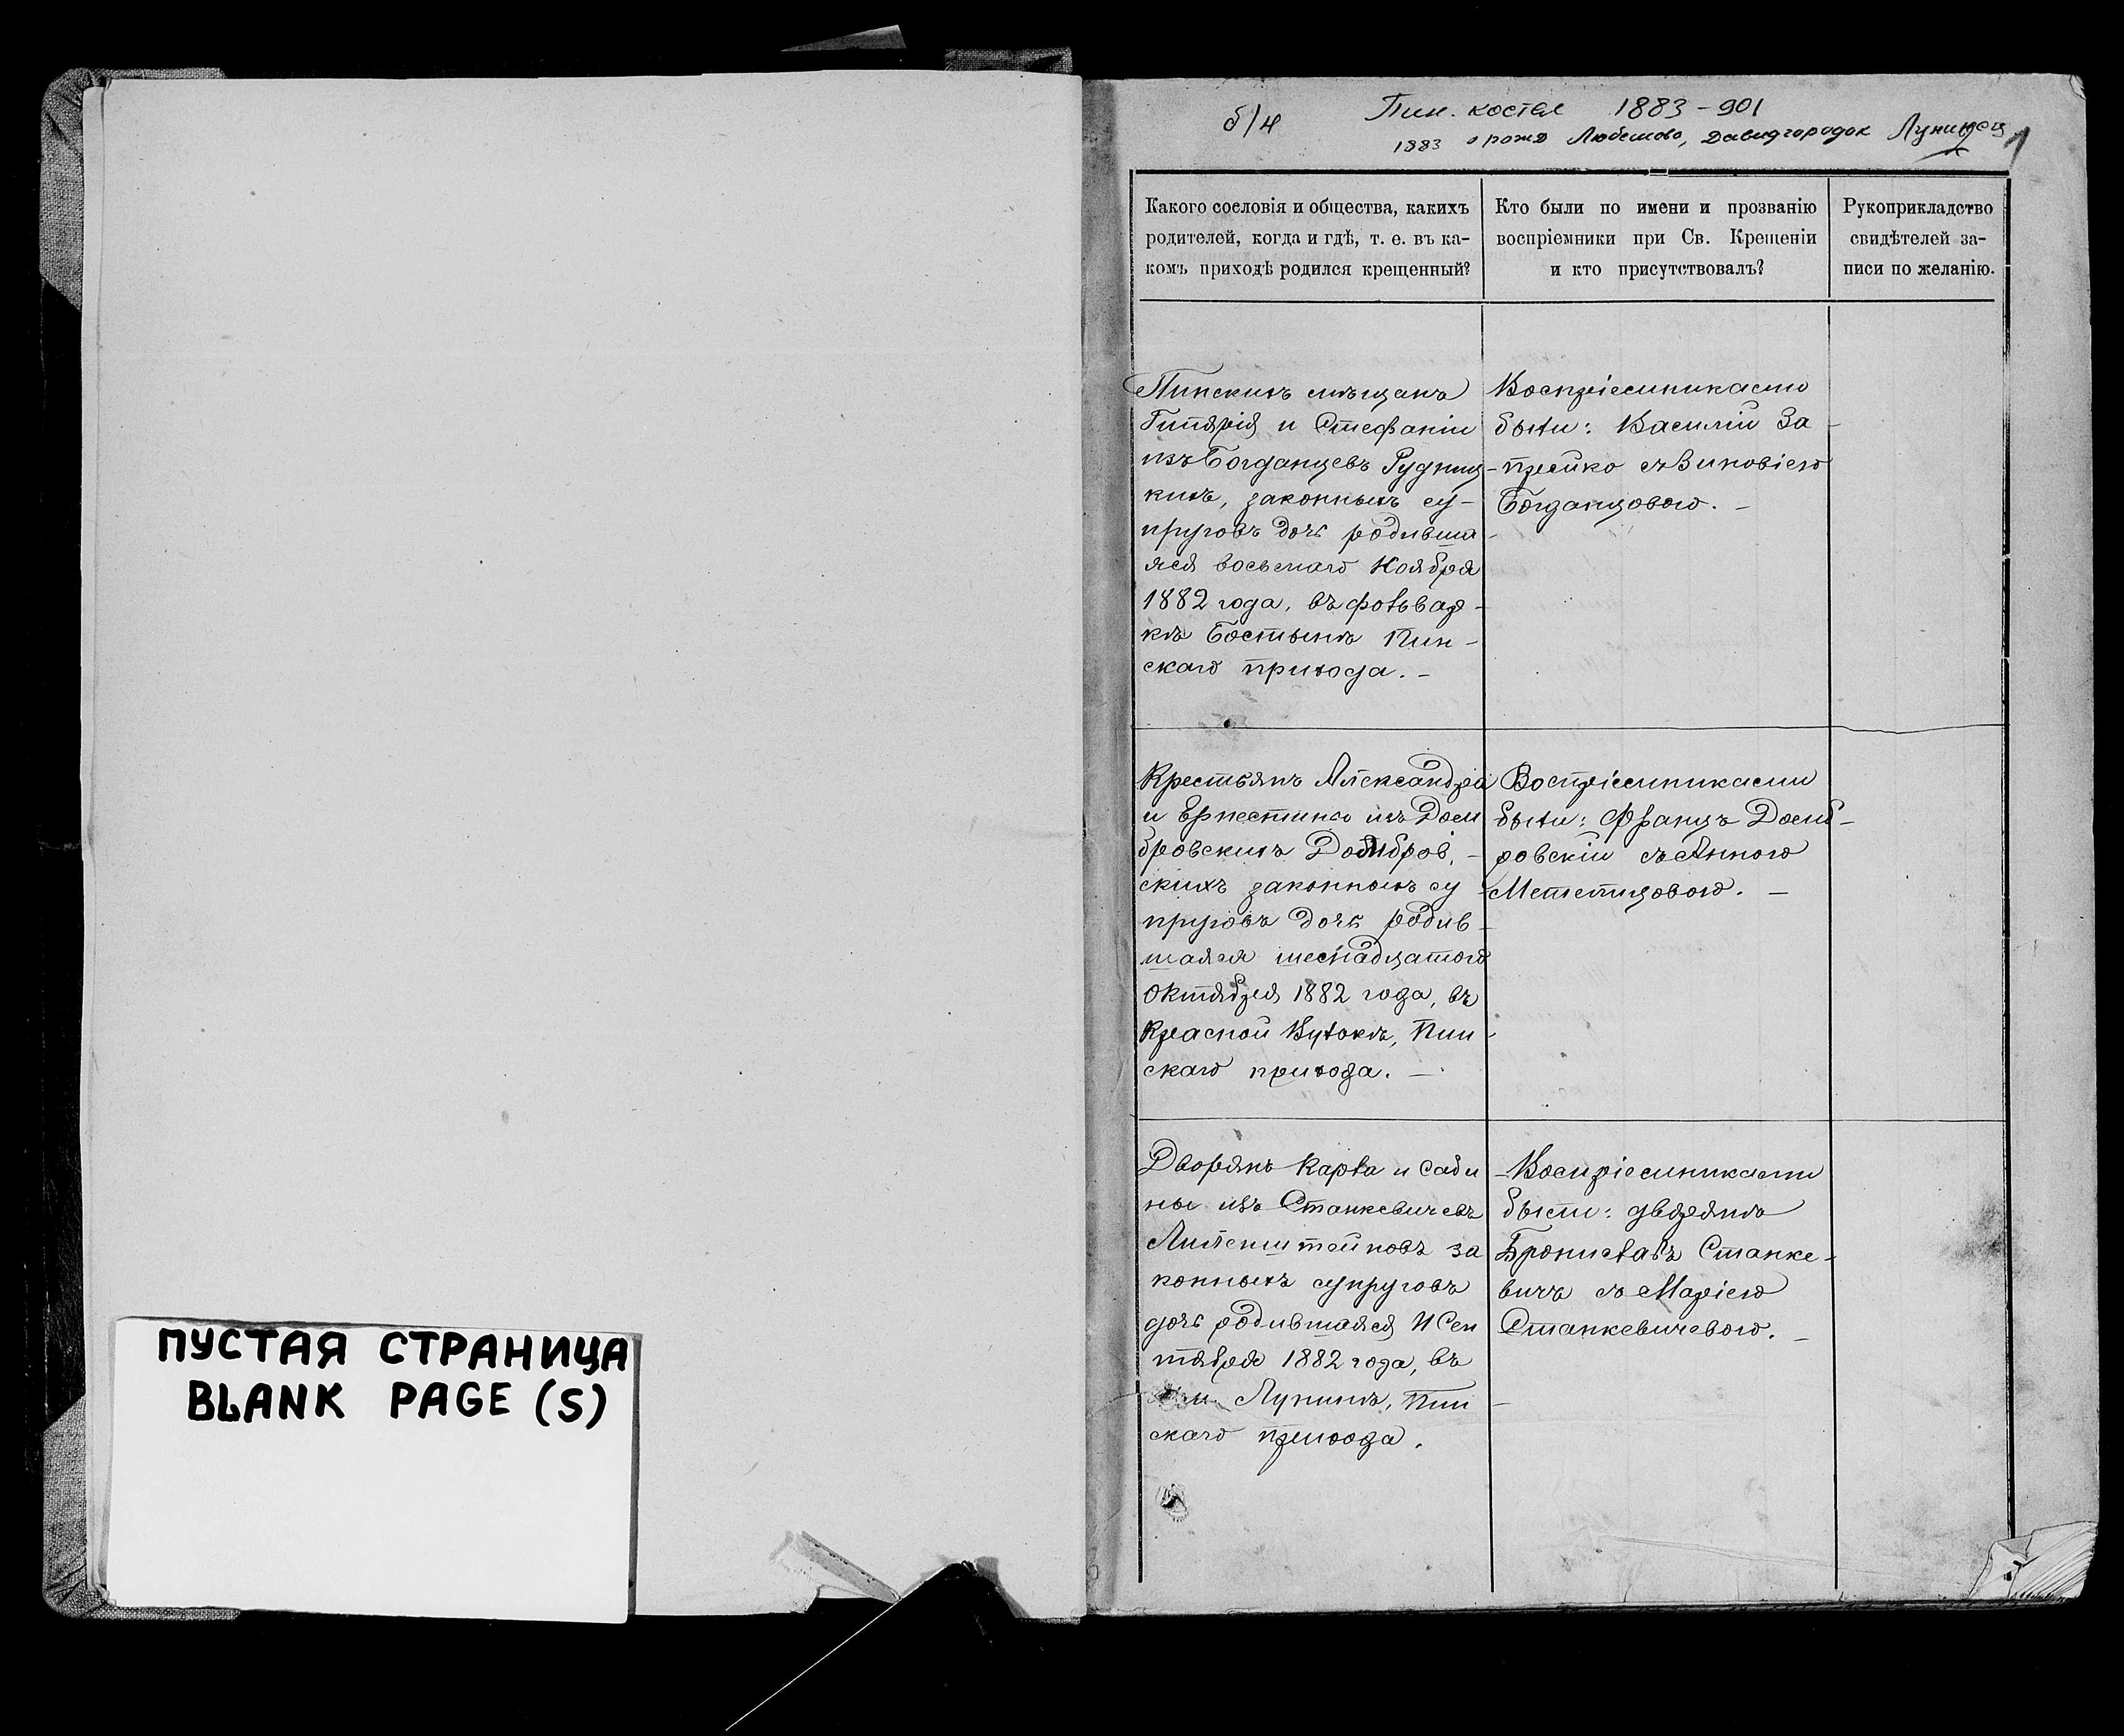 ПУСТАЯ СТРАНИЦА
BLANK PAGE (S)
б/н Пин. костел 1883-901
1883 о рожд Любешово, Давидгородок Лунинец
1
Какого сословія и общества, какихъ
родителей, когда и гдѣ, т. е. въ ка-
комъ приходѣ родился крещенный?
Кто были по имени и прозванію
воспріемники при Св. Крещеніи
и кто присутствовалъ?
Рукоприкладство
свидѣтелей за-
писи по желанію.
Пинскихъ мѣщанъ
и Стефаніи
изъ Богданцевъ Рудниц-
кихъ, законныхъ су-
пруговъ дочь родивша-
яся восьмаго Ноября
1882 года, въ фольвар-
кѣ Бостынѣ Пин-
скаго прихода. -
Воспріемниками
были: Василій За-
прейко съ Зиновіею
Богданцовою. -
Крестьянъ Александра
и Ернестины изъ Дом
бровскихъ Домбров-
скихъ законныхъ су-
пруговъ дочь родив-
шаяся шеснадцатого
Октября 1882 года, въ
Красной Пин-
скаго прихода. -
Воспріемниками
были: Францъ Домб-
ровскій съ Анною
-
Дворянъ Карла и Саби
ны изъ Станкевичевъ
за
конныхъ супруговъ
дочь родившаяся Сен
тября 1882 года, въ
Лунинѣ, Пин-
скаго прихода.
Воспріемниками
были: дворянъ
Брониславъ Станке-
вичъ съ Маріею
Станкевичевою. -